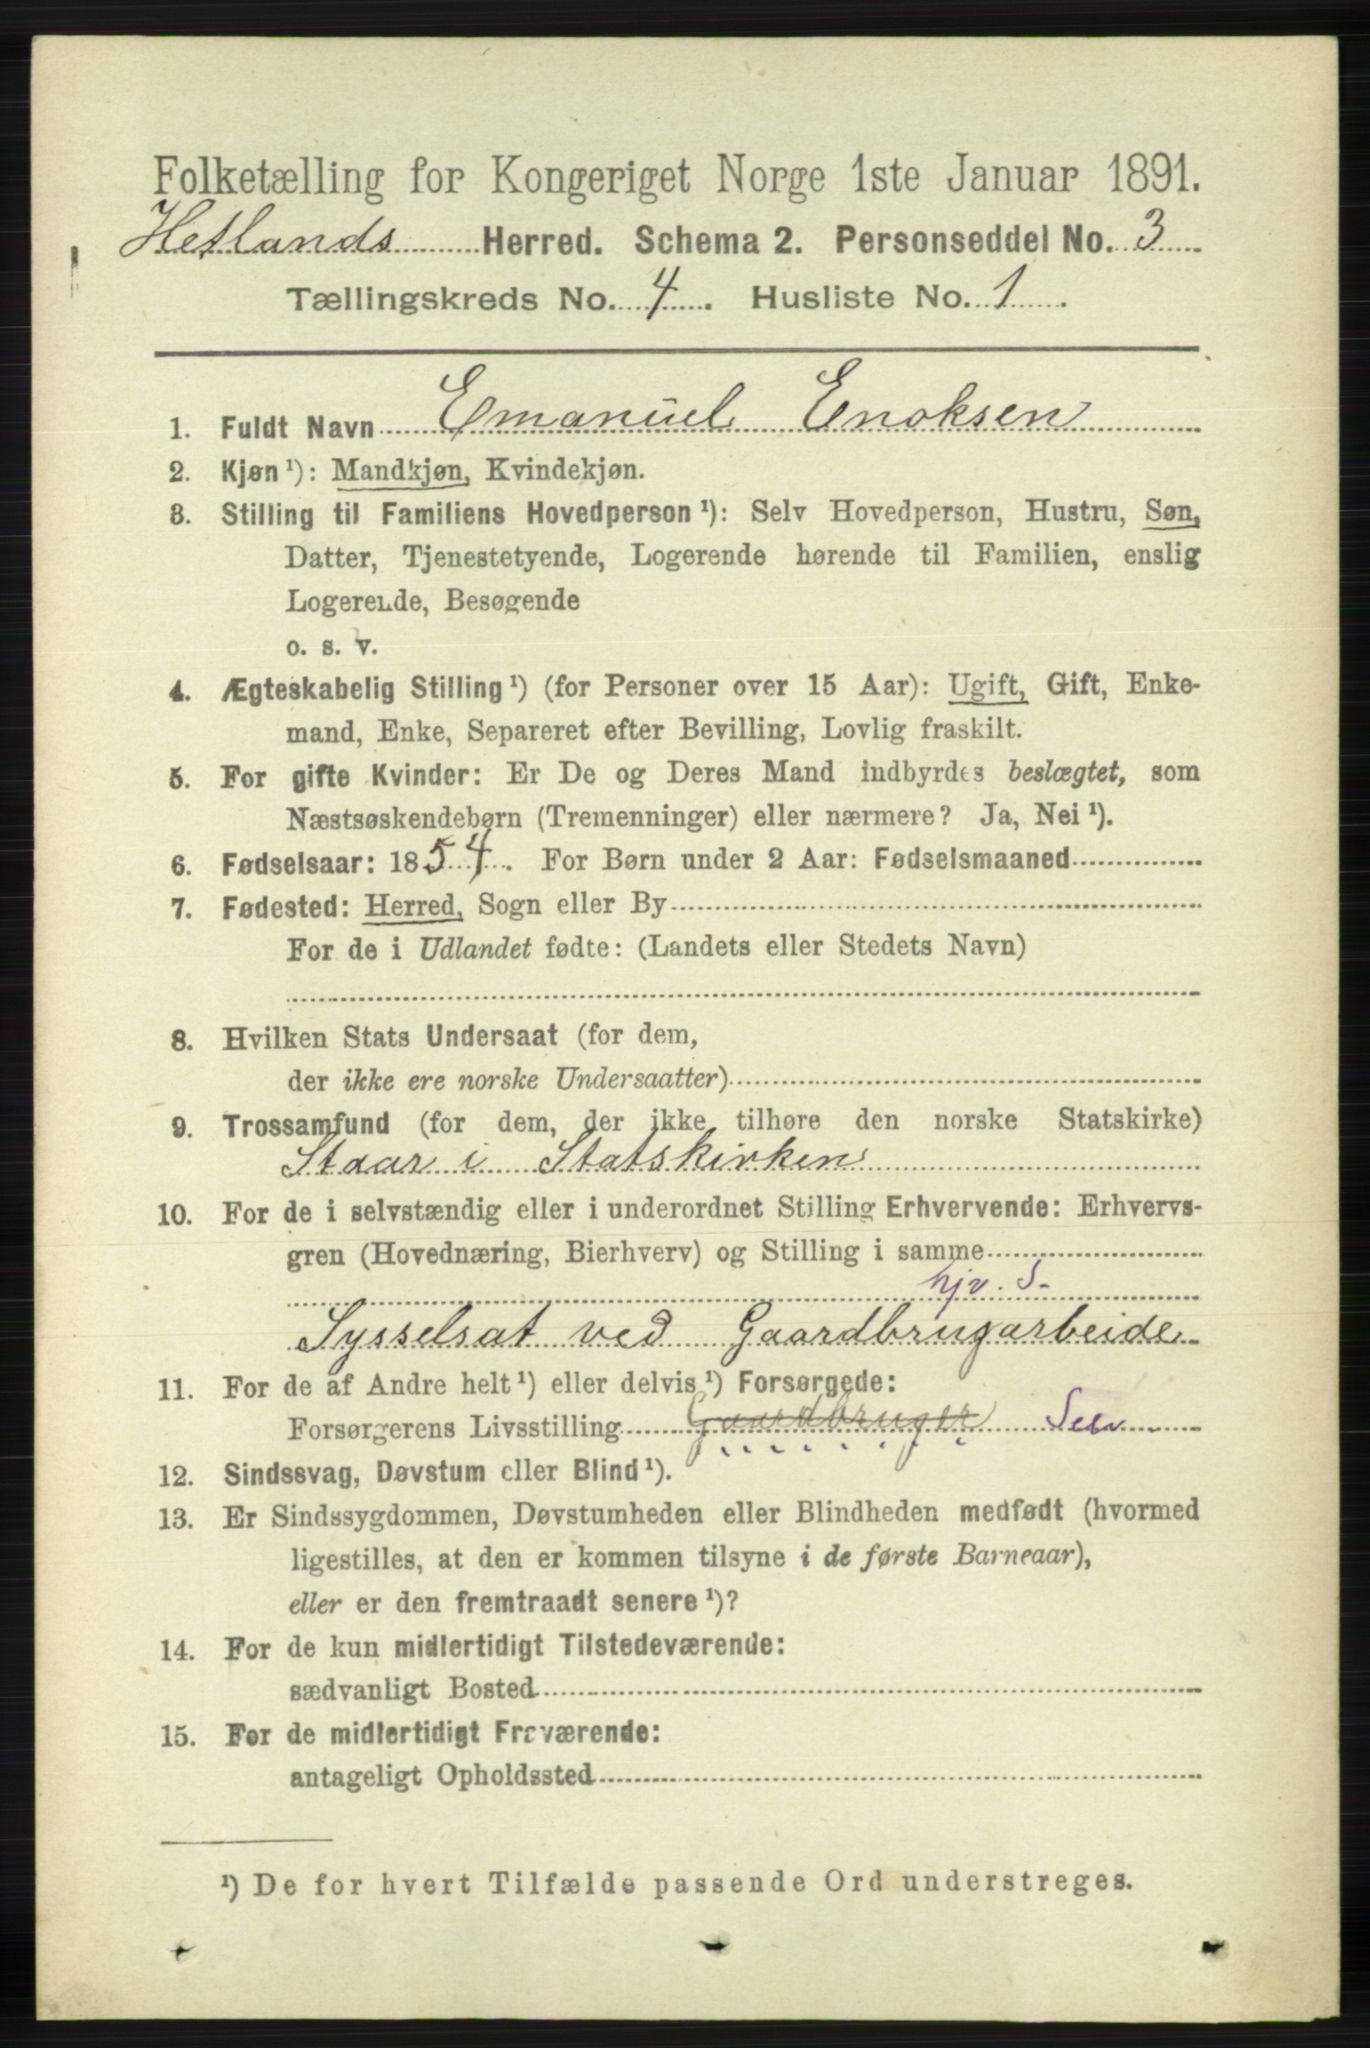 Folketælling for Kongeriget Norge 1ste Januar 1891.
Hetlands Herred. Schema 2. Personseddel No. 3
Tællingskreds No. 4. Husliste No. 1.
1. Fuldt Navn Emanuel Enoksen
2. Kjøn¹): Mandkjøn, Kvindekjøn.
3. Stilling til Familiens Hovedperson¹): Selv Hovedperson, Hustru, Søn,
Datter, Tjenestetyende, Logerende hørende til Familien, enslig
Logerende, Besøgende
o. s. v.
4. Ægteskabelig Stilling¹) (for Personer over 15 Aar): Ugift, Gift, Enke-
mand, Enke, Separeret efter Bevilling, Lovlig fraskilt.
5. For gifte Kvinder: Er De og Deres Mand indbyrdes beslægtet, som
Næstsøskendebørn (Tremenninger) eller nærmere? Ja, Nei¹).
6. Fødselsaar: 1854. For Børn under 2 Aar: Fødselsmaaned
7. Fødested: Herred, Sogn eller By
For de i Udlandet fødte: (Landets eller Stedets Navn)
8. Hvilken Stats Undersaat (for dem,
der ikke ere norske Undersaatter)
9. Trossamfund (for dem, der ikke tilhøre den norske Statskirke)
Staar i Statskirken
10. For de i selvstændig eller i underordnet Stilling Erhvervende: Erhvervs-
gren (Hovednæring, Bierhverv) og Stilling i samme
hjv. S.
Sysselsat ved Gaardbrugarbeide
11. For de af Andre helt¹) eller delvis¹) Forsørgede:
Forsørgerens Livsstilling Gaardbruger Selv
12. Sindssvag, Døvstum eller Blind¹).
13. Er Sindssygdommen, Døvstumheden eller Blindheden medfødt (hvormed
ligestilles, at den er kommen tilsyne i de første Barneaar),
eller er den fremtraadt senere¹)?
14. For de kun midlertidigt Tilstedeværende:
sædvanligt Bosted
15. For de midlertidigt Fraværende:
antageligt Opholdssted
¹) De for hvert Tilfælde passende Ord understreges.